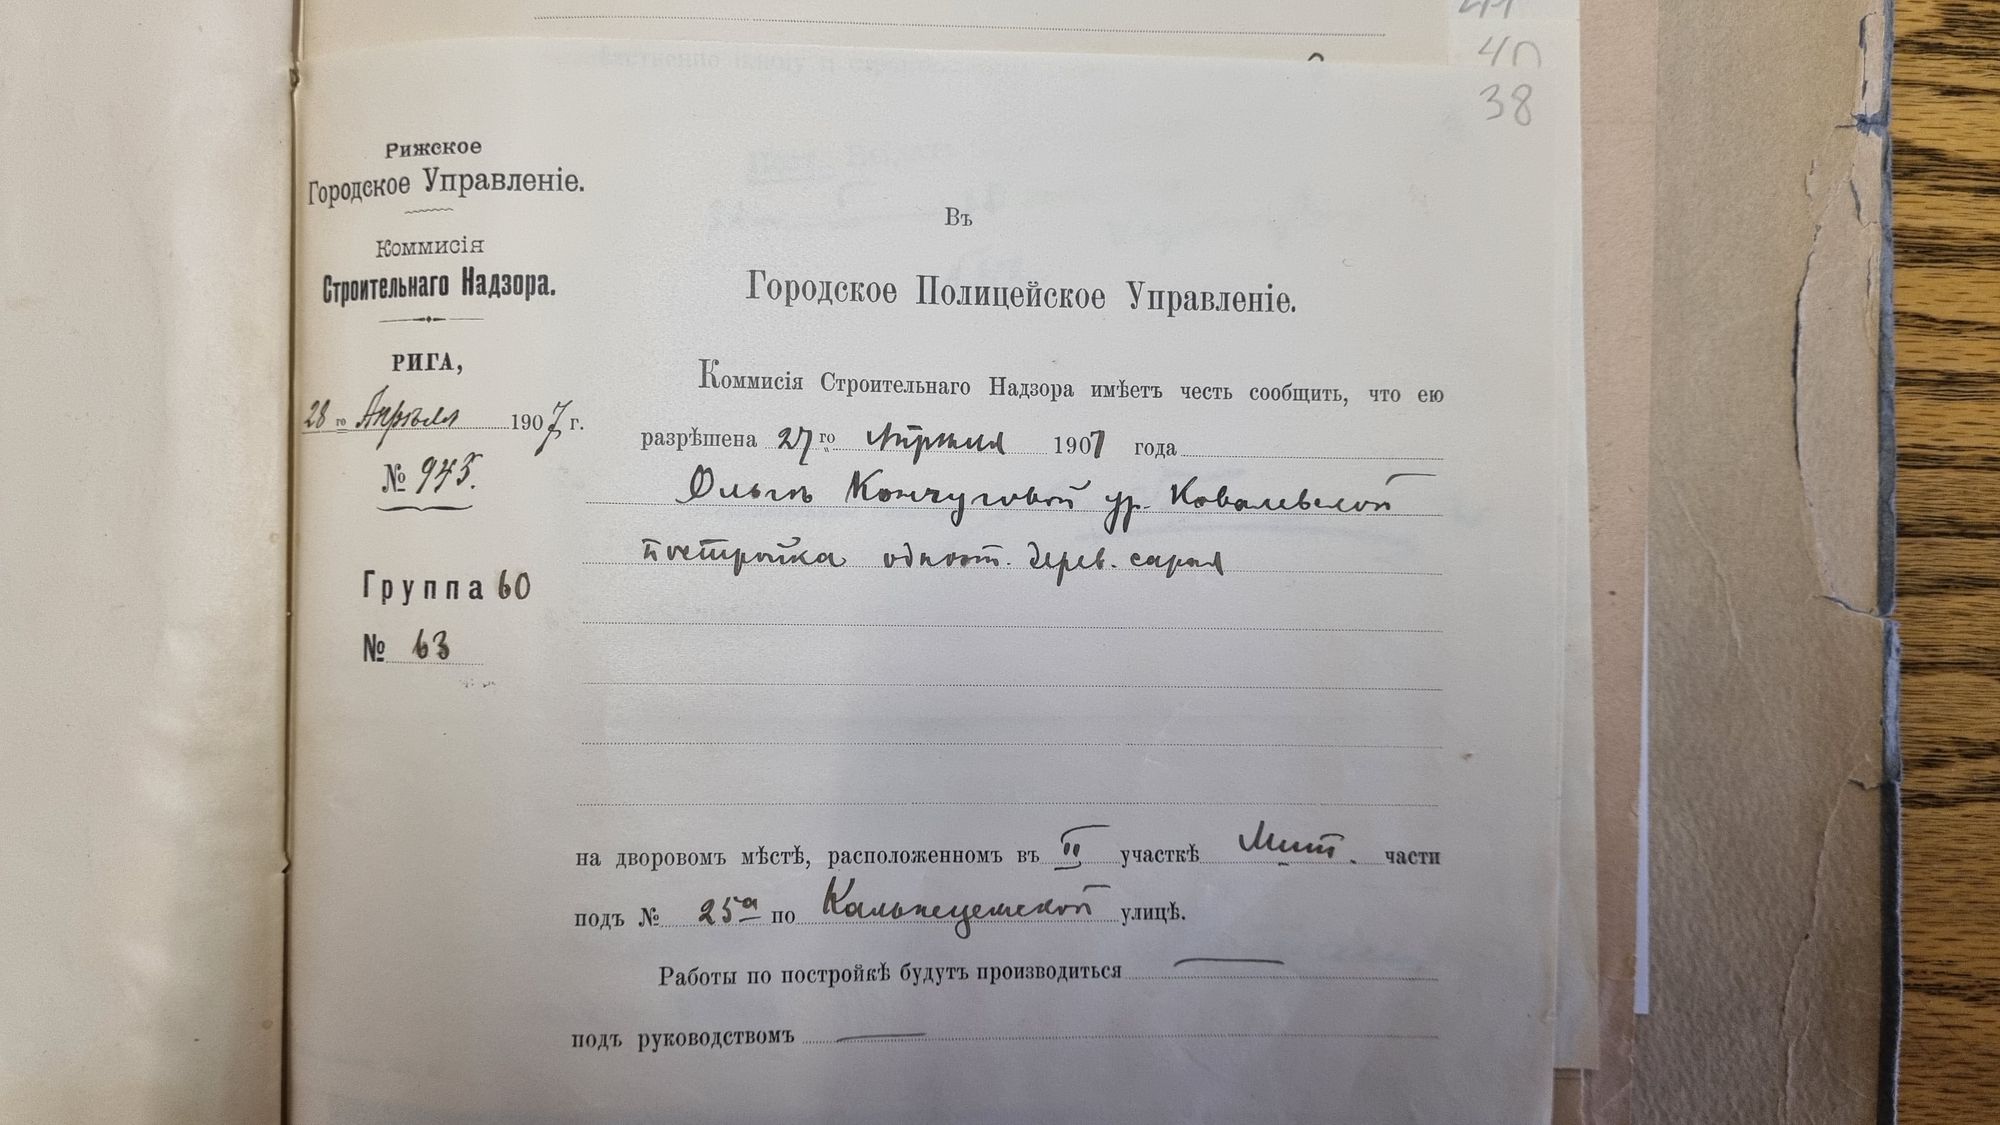 40
38
Рижское
Городское Управленіе.
Коммисія
Строительнаго Надзора.
РИГА,
28го Апрѣля 1907 г.
№ 943.
Группа 60
№ 63
Въ
Городское Полицейское Управленіе.
Коммисія Строительнаго Надзора имѣетъ честь сообщить, что ею
разрѣшена 27го Апрѣля 1907 года
Ольгѣ Кончуговой ур. Ковалевской
постройка одноэт. дерев. сарая
на дворовомъ мѣстѣ, расположенномъ въ II участкѣ Мит. части
подъ № 25а по Кальнецемской улицѣ.
Работы по постройкѣ будутъ производиться
подъ руководствомъ